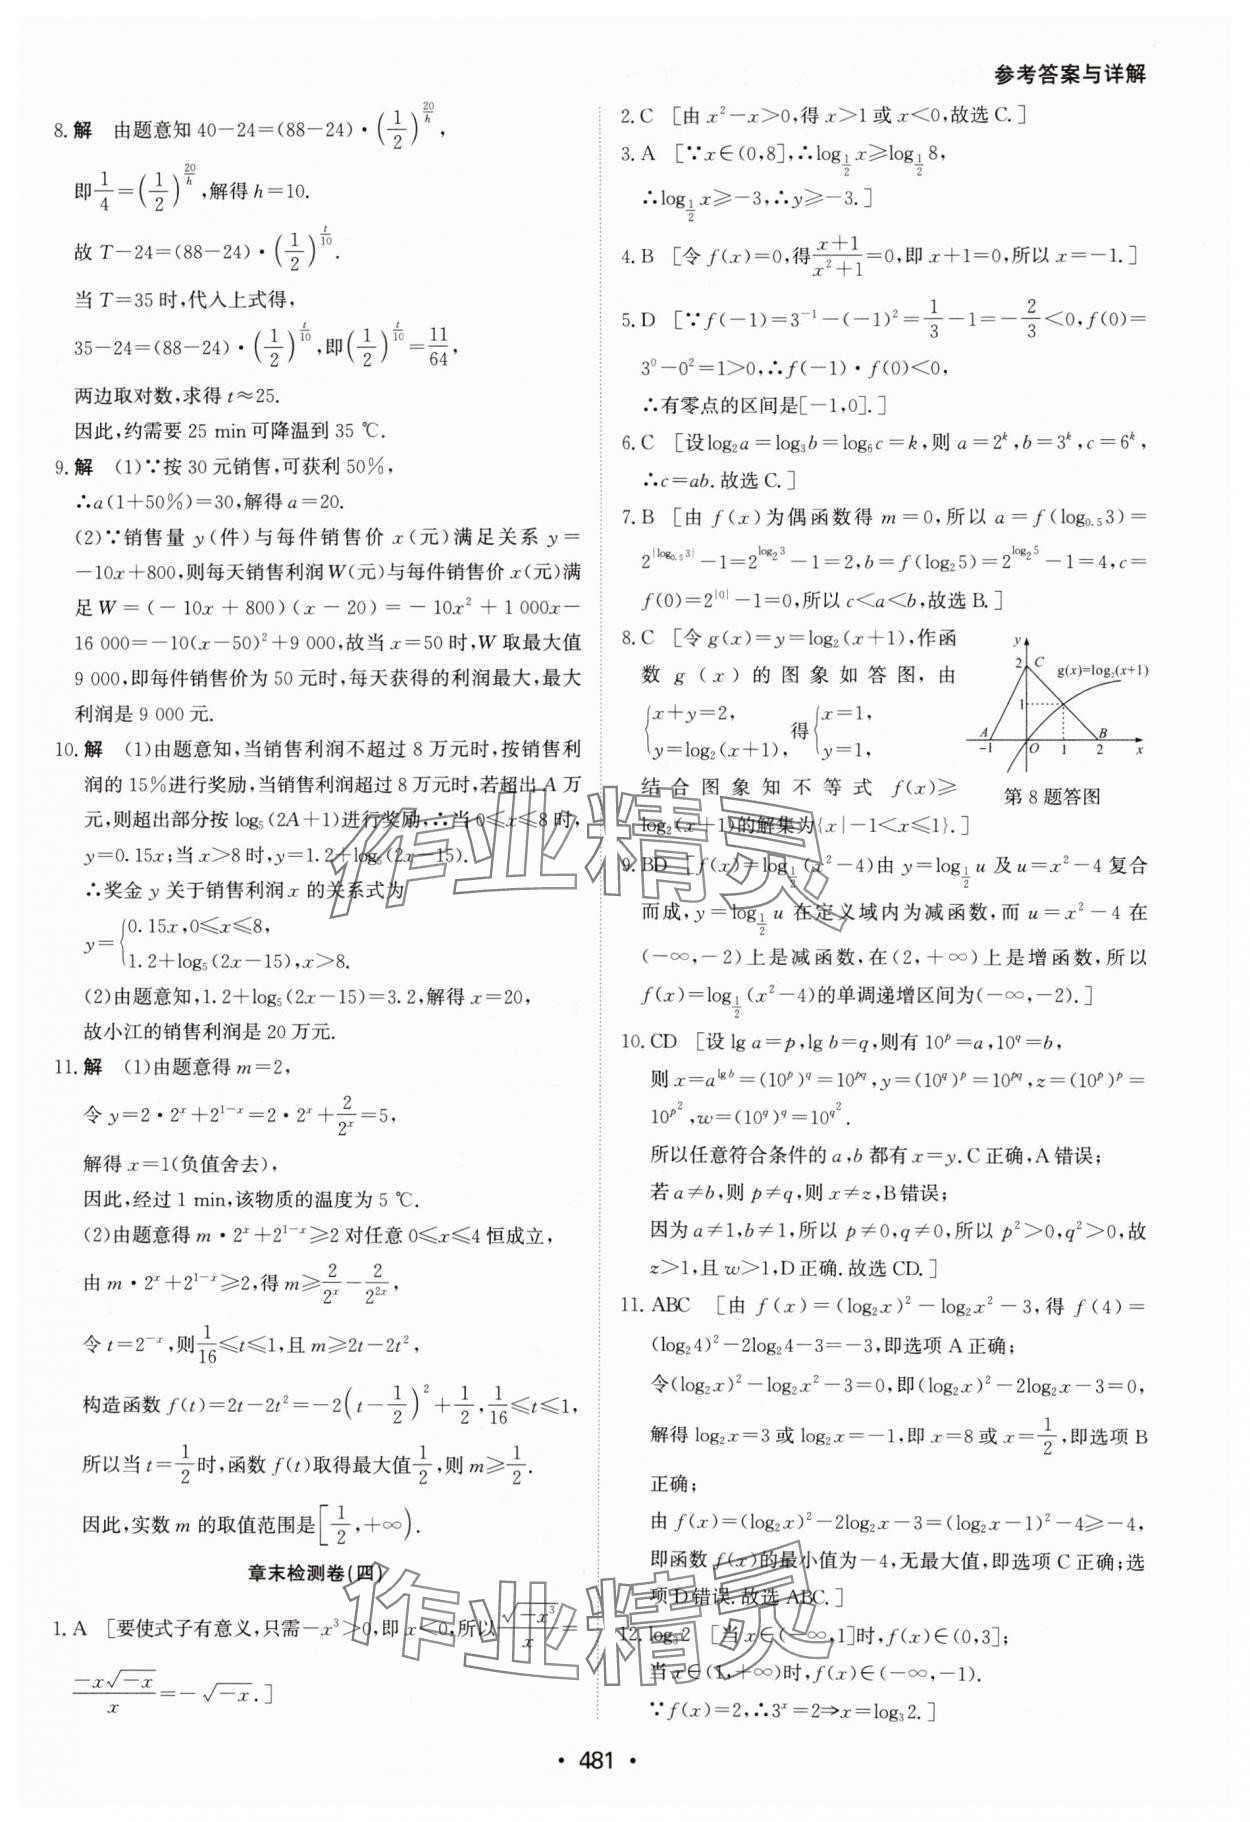 参考答案与详解
8.解 由题意知 40－24＝(88－24)·(1/2)^(20/h),
即1/4＝(1/2)^(20/h),解得 h＝10.
故 T－24＝(88－24)·(1/2)^(t/10).
当 T＝35 时,代入上式得,
35－24＝(88－24)·(1/2)^(t/10),即(1/2)^(t/10)＝11/64,
两边取对数,求得 t≈25.
因此,约需要 25 min 可降温到 35 ℃.
9.解 (1)∵按 30 元销售,可获利 50%,
∴a(1＋50%)＝30,解得 a＝20.
(2)∵销售量 y(件)与每件销售价 x(元)满足关系 y＝
－10x＋800,则每天销售利润 W(元)与每件销售价 x(元)满
足 W＝(－10x＋800)(x－20)＝－10x²＋1 000x－
16 000＝－10(x－50)²＋9 000,故当 x＝50 时,W 取最大值
9 000,即每件销售价为 50 元时,每天获得的利润最大,最大
利润是 9 000 元.
10.解 (1)由题意知,当销售利润不超过 8 万元时,按销售利
润的 15%进行奖励,当销售利润超过 8 万元时,若超出 A 万
元,则超出部分按 log₅(2A＋1)进行奖励,∴当 0≤x≤8 时,
y＝0.15x;当 x＞8 时,y＝1.2＋log₅(2x－15).
∴奖金 y 关于销售利润 x 的关系式为
y＝{0.15x,0≤x≤8,
1.2＋log₅(2x－15),x＞8.
(2)由题意知,1.2＋log₅(2x－15)＝3.2,解得 x＝20,
故小江的销售利润是 20 万元.
11.解 (1)由题意得 m＝2,
令 y＝2·2^x＋2^(1－x)＝2·2^x＋2/2^x＝5,
解得 x＝1(负值舍去),
因此,经过 1 min,该物质的温度为 5 ℃.
(2)由题意得 m·2^x＋2^(1－x)≥2 对任意 0≤x≤4 恒成立,
由 m·2^x＋2^(1－x)≥2,得 m≥2/2^x－2/2^(2x),
令 t＝2^(－x),则1/16≤t≤1,且 m≥2t－2t²,
构造函数 f(t)＝2t－2t²＝－2(t－1/2)²＋1/2,1/16≤t≤1,
所以当 t＝1/2时,函数 f(t)取得最大值1/2,则 m≥1/2.
因此,实数 m 的取值范围是[1/2,＋∞).
章末检测卷(四)
1.A [要使式子有意义,只需－x³＞0,即 x＜0,所以√(－x³)/x＝
－x√(－x)/x＝－√(－x).]
2.C [由 x²－x＞0,得 x＞1 或 x＜0,故选 C.]
3.A [∵x∈(0,8],∴log_(1/2) x≥log_(1/2) 8,
∴log_(1/2) x≥－3,∴y≥－3.]
4.B [令 f(x)＝0,得(x＋1)/(x²＋1)＝0,即 x＋1＝0,所以 x＝－1.]
5.D [∵f(－1)＝3⁻¹－(－1)²＝1/3－1＝－2/3＜0,f(0)＝
3⁰－0²＝1＞0,∴f(－1)·f(0)＜0,
∴有零点的区间是[－1,0].]
6.C [设log₂a＝log₃b＝log₆c＝k,则 a＝2^k,b＝3^k,c＝6^k,
∴c＝ab.故选 C.]
7.B [由 f(x)为偶函数得 m＝0,所以 a＝f(log₀.₅3)＝
2^|log₀.₅3|－1＝2^(log₂3)－1＝2,b＝f(log₂5)＝2^(log₂5)－1＝4,c＝
f(0)＝2^|0|－1＝0,所以 c＜a＜b,故选 B.]
8.C [令 g(x)＝y＝log₂(x＋1),作函
数 g(x)的图象如答图,由
{x＋y＝2,
y＝log₂(x＋1), 得 {x＝1,
y＝1,
结合图象知不等式 f(x)≥
log₂(x＋1)的解集为{x|－1＜x≤1}.]
y
2 C
g(x)=log₂(x+1)
1
A B
-1 O 1 2 x
第 8 题答图
9.BD [f(x)＝log_(1/2)(x²－4)由 y＝log_(1/2) u 及 u＝x²－4 复合
而成,y＝log_(1/2) u 在定义域内为减函数,而 u＝x²－4 在
(－∞,－2)上是减函数,在(2,＋∞)上是增函数,所以
f(x)＝log_(1/2)(x²－4)的单调递增区间为(－∞,－2).]
10.CD [设 lg a＝p,lg b＝q,则有 10^p＝a,10^q＝b,
则 x＝a^(lg b)＝(10^p)^q＝10^(pq),y＝(10^q)^p＝10^(pq),z＝(10^p)^p＝
10^(p²),w＝(10^q)^q＝10^(q²).
所以任意符合条件的 a,b 都有 x＝y.C 正确,A 错误;
若 a≠b,则 p≠q,则 x≠z,B 错误;
因为 a≠1,b≠1,所以 p≠0,q≠0,所以 p²＞0,q²＞0,故
z＞1,且 w＞1,D 正确.故选 CD.]
11.ABC [由 f(x)＝(log₂x)²－log₂x²－3,得 f(4)＝
(log₂4)²－2log₂4－3＝－3,即选项 A 正确;
令(log₂x)²－log₂x²－3＝0,即(log₂x)²－2log₂x－3＝0,
解得 log₂x＝3 或 log₂x＝－1,即 x＝8 或 x＝1/2,即选项 B
正确;
由 f(x)＝(log₂x)²－2log₂x－3＝(log₂x－1)²－4≥－4,
即函数 f(x)的最小值为－4,无最大值,即选项 C 正确;选
项 D 错误.故选 ABC.]
12.log₃2 [当 x∈(－∞,1]时,f(x)∈(0,3];
当 x∈(1,＋∞)时,f(x)∈(－∞,－1).
∵f(x)＝2,∴3^x＝2⇒x＝log₃2.]
· 481 ·
作业精灵
作业精灵